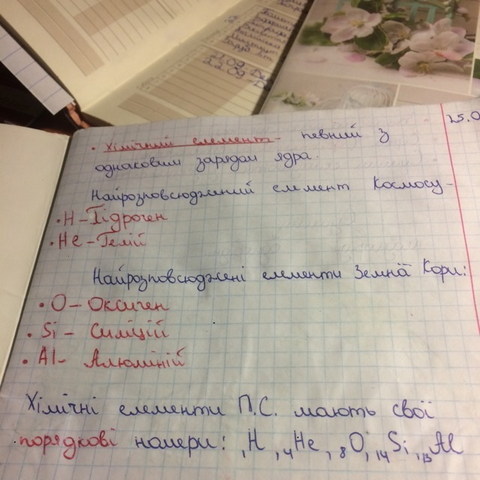 25.0
• Хімічний елемент - певний з
однаковим зарядом ядра
Найрозповсюджений елемент Космосу -
• H – Гідроген
• He – Гелій
Найрозповсюджені елементи Земної Кори:
• O – Оксиген
• Si – Силіцій
• Al – Алюміній
Хімічні елементи П.С. мають свої
порядкові номери: ₁H, ₄He, ₈O, ₁₄Si, ₁₃Al